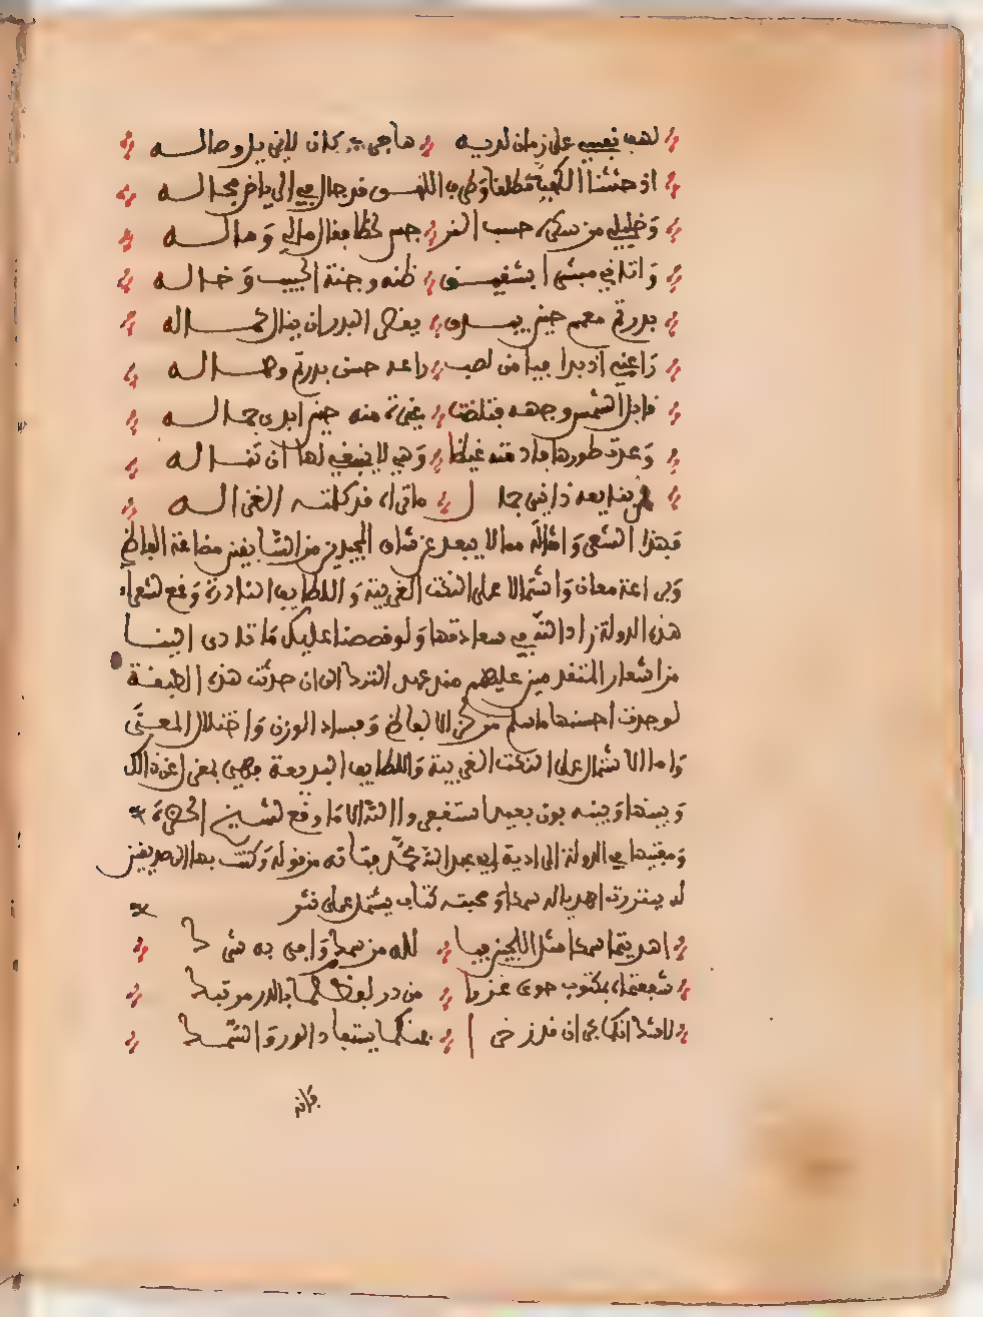 لهف نفسي على زمان لديه هاجري كان لا يني بل وصاله
اذ حثثنا الكميت مطلقا وطرف اللهو قد جال في الرياض مجاله
وخليلي من سكر حسب النرجس لحظا فقال مالي وماله
واتاني مبشرا بشقيق ظنه وجنة الحبيب وخاله
بدر تم معمم حين يسري يغضي البدر ان ينال كماله
راعني اذ بدا فيا من لصب راعه حسن بدر تم وهاله
قابل الشمس وجهه فتلظت غيرة منه حين ابدى جماله
وعدت طورها فادمته غيظا وهي لا ينبغي لها ان تناله
من بنا بعد ذا في جما ل ما قراء قد كلته الغزاله
فهذا الشعر وامثاله مما لا يبعد عن شان المجيدين من السابقين من صاغة الفاظ
وبراعة معان واشتمالا على النكت الغريبة واللطايف النادرة وقع لشعراء
هذه الدولة زاد الله في سعادتها ولو قصصنا عليك ما تادى الينا
من اشعار المتقدمين عليهم منذ عهد الترك الى ان حدثت هذه الطبقة
لوجدت احسنها ما سلم من الالفاظ وفساد الوزن واختلال المعنى
واما الاشتمال على النكت الغريبة واللطايف البديعة فهي بمعزل عن ذلك
وبينها وبينه بون بعيد استغفر والله الا ما وقع لشيخ الحضرة
ومفتيها في الدولة المرادية ابي عبد الله محمد فتاته من قوله وكتب بها الى صديقين
له يتفزرت اهديا له سمكا وصحبته كتاب يشتمل على نثر
اهديتما سمكا مثل اللجين فيا لله من سمك وافى به شركا
شفعتماه بمكتوب حوى غررا من در لفظكما بالدر مرتبكا
لا شك انكما بحران قد زخرا عنكما يستفاد الدر والسمكا